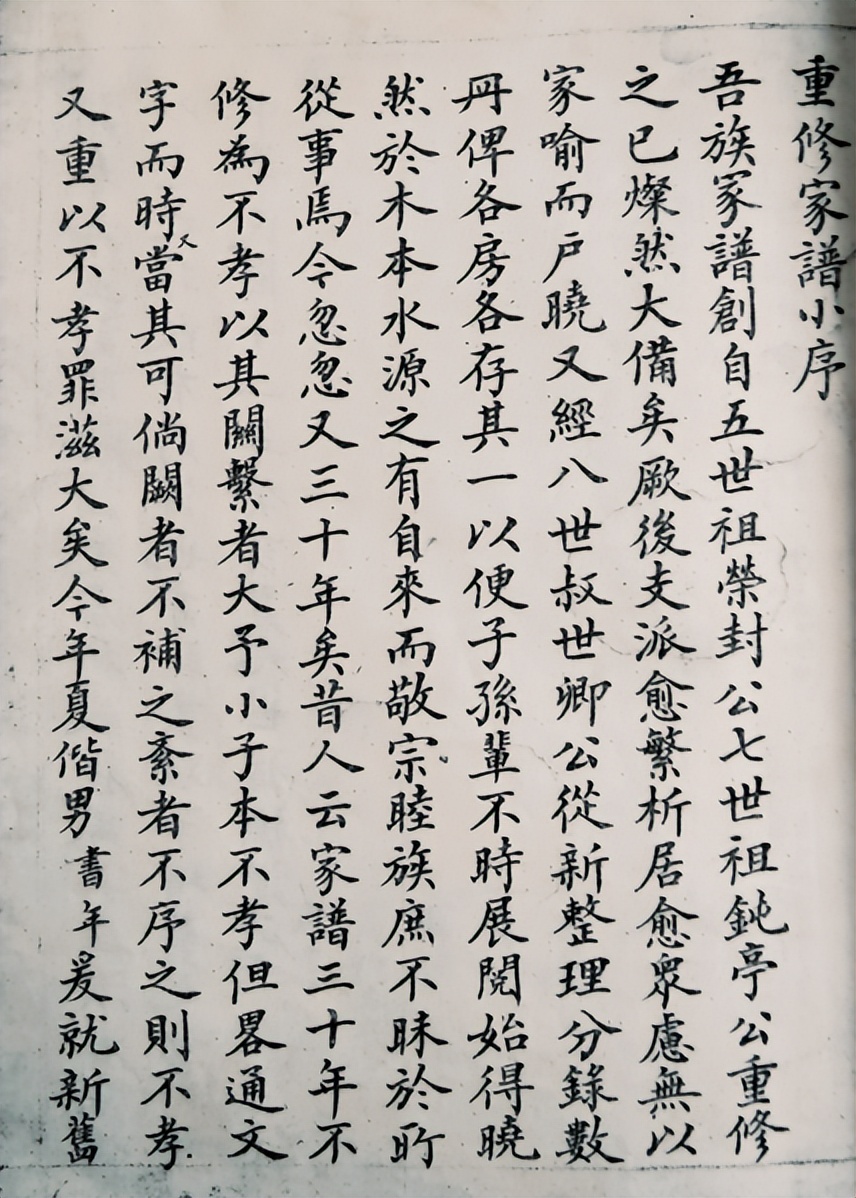 重修家譜小序
吾族冡譜創自五世祖榮封公七世祖鈍亭公重修
之已燦然大備矣厥後支派愈繁析居愈衆慮無以
家喻而戶曉又經八世叔世卿公從新整理分錄數
冊俾各房各存其一以便子孫輩不時展閱始得曉
然於木本水源之有自來而敬宗睦族庶不昧於所
從事焉今忽忽又三十年矣昔人云家譜三十年不
修為不孝以其關繫者大予小子本不孝但畧通文
字而時又當其可倘闕者不補之紊者不序之則不孝
又重以不孝罪滋大矣今年夏偕男書年爰就新舊